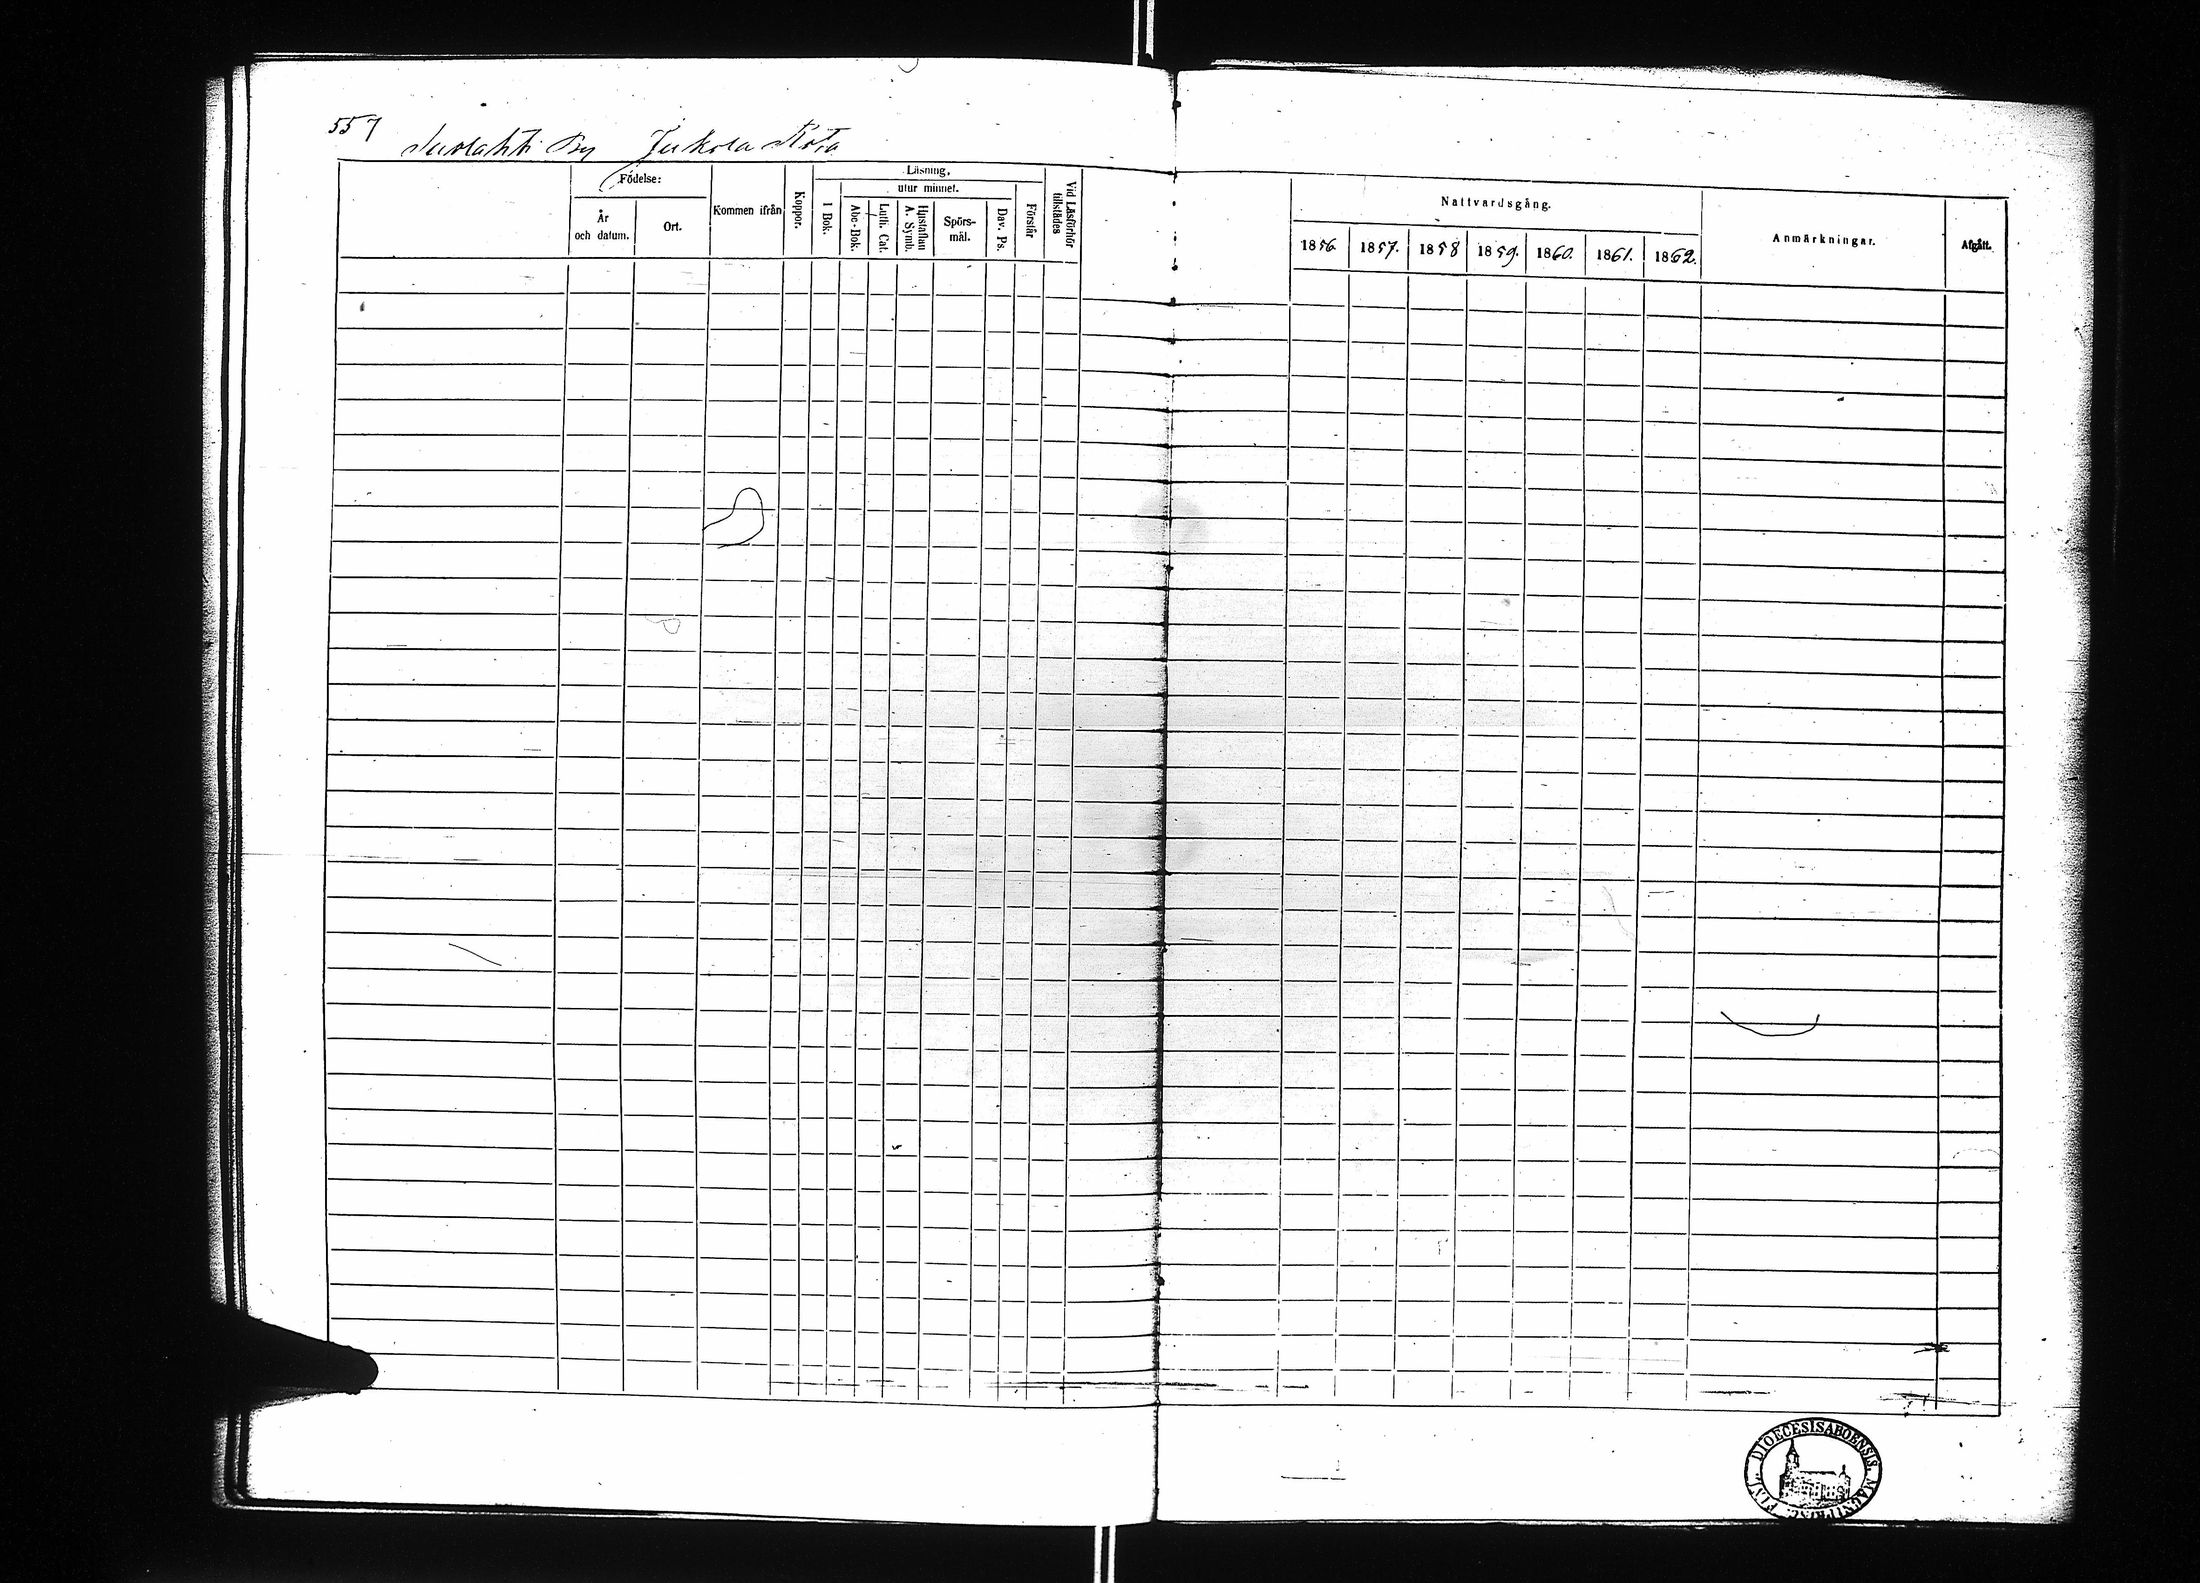 557
By Jukola
Födelse:
År och datum.
Ort.
Kommen ifrån
Koppor.
Läsning,
utur minnet.
I Bok.
Abc-Bok.
Luth. Cat.
Hustaflan A. Symb.
Spörs-mål.
Dav. Ps.
Förstår
Vid Läsförhör tillstädes
Nattvardsgång.
1856. 1857. 1858 1859. 1860. 1861. 1862.
Anmärkningar.
Afgått.
DIOECESIS ABOENSIS.